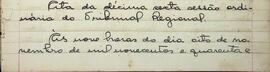 Ata da décima sexta sessão ordi-
nária do Tribunal Regional.
Às nove horas do dia oito de no-
vembro de mil novecentos e quarenta e